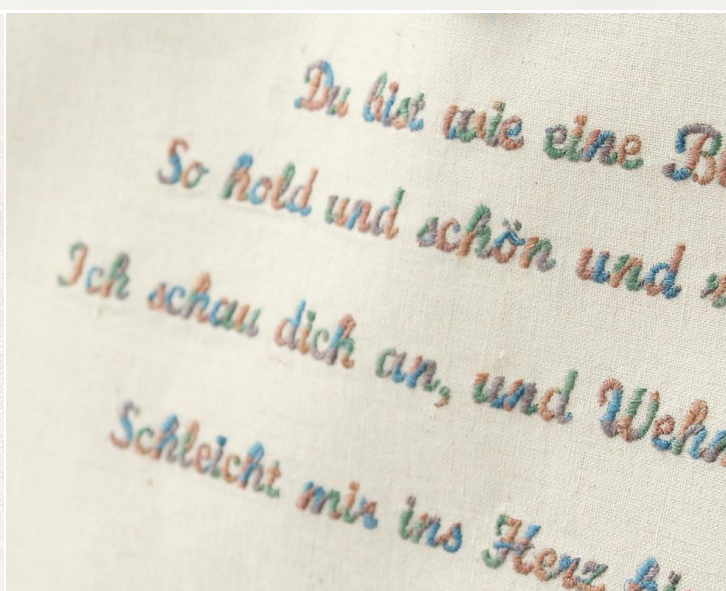 Du bist wie eine
So hold und schön und
Ich schau dich an, und
Schleicht mir ins Herz